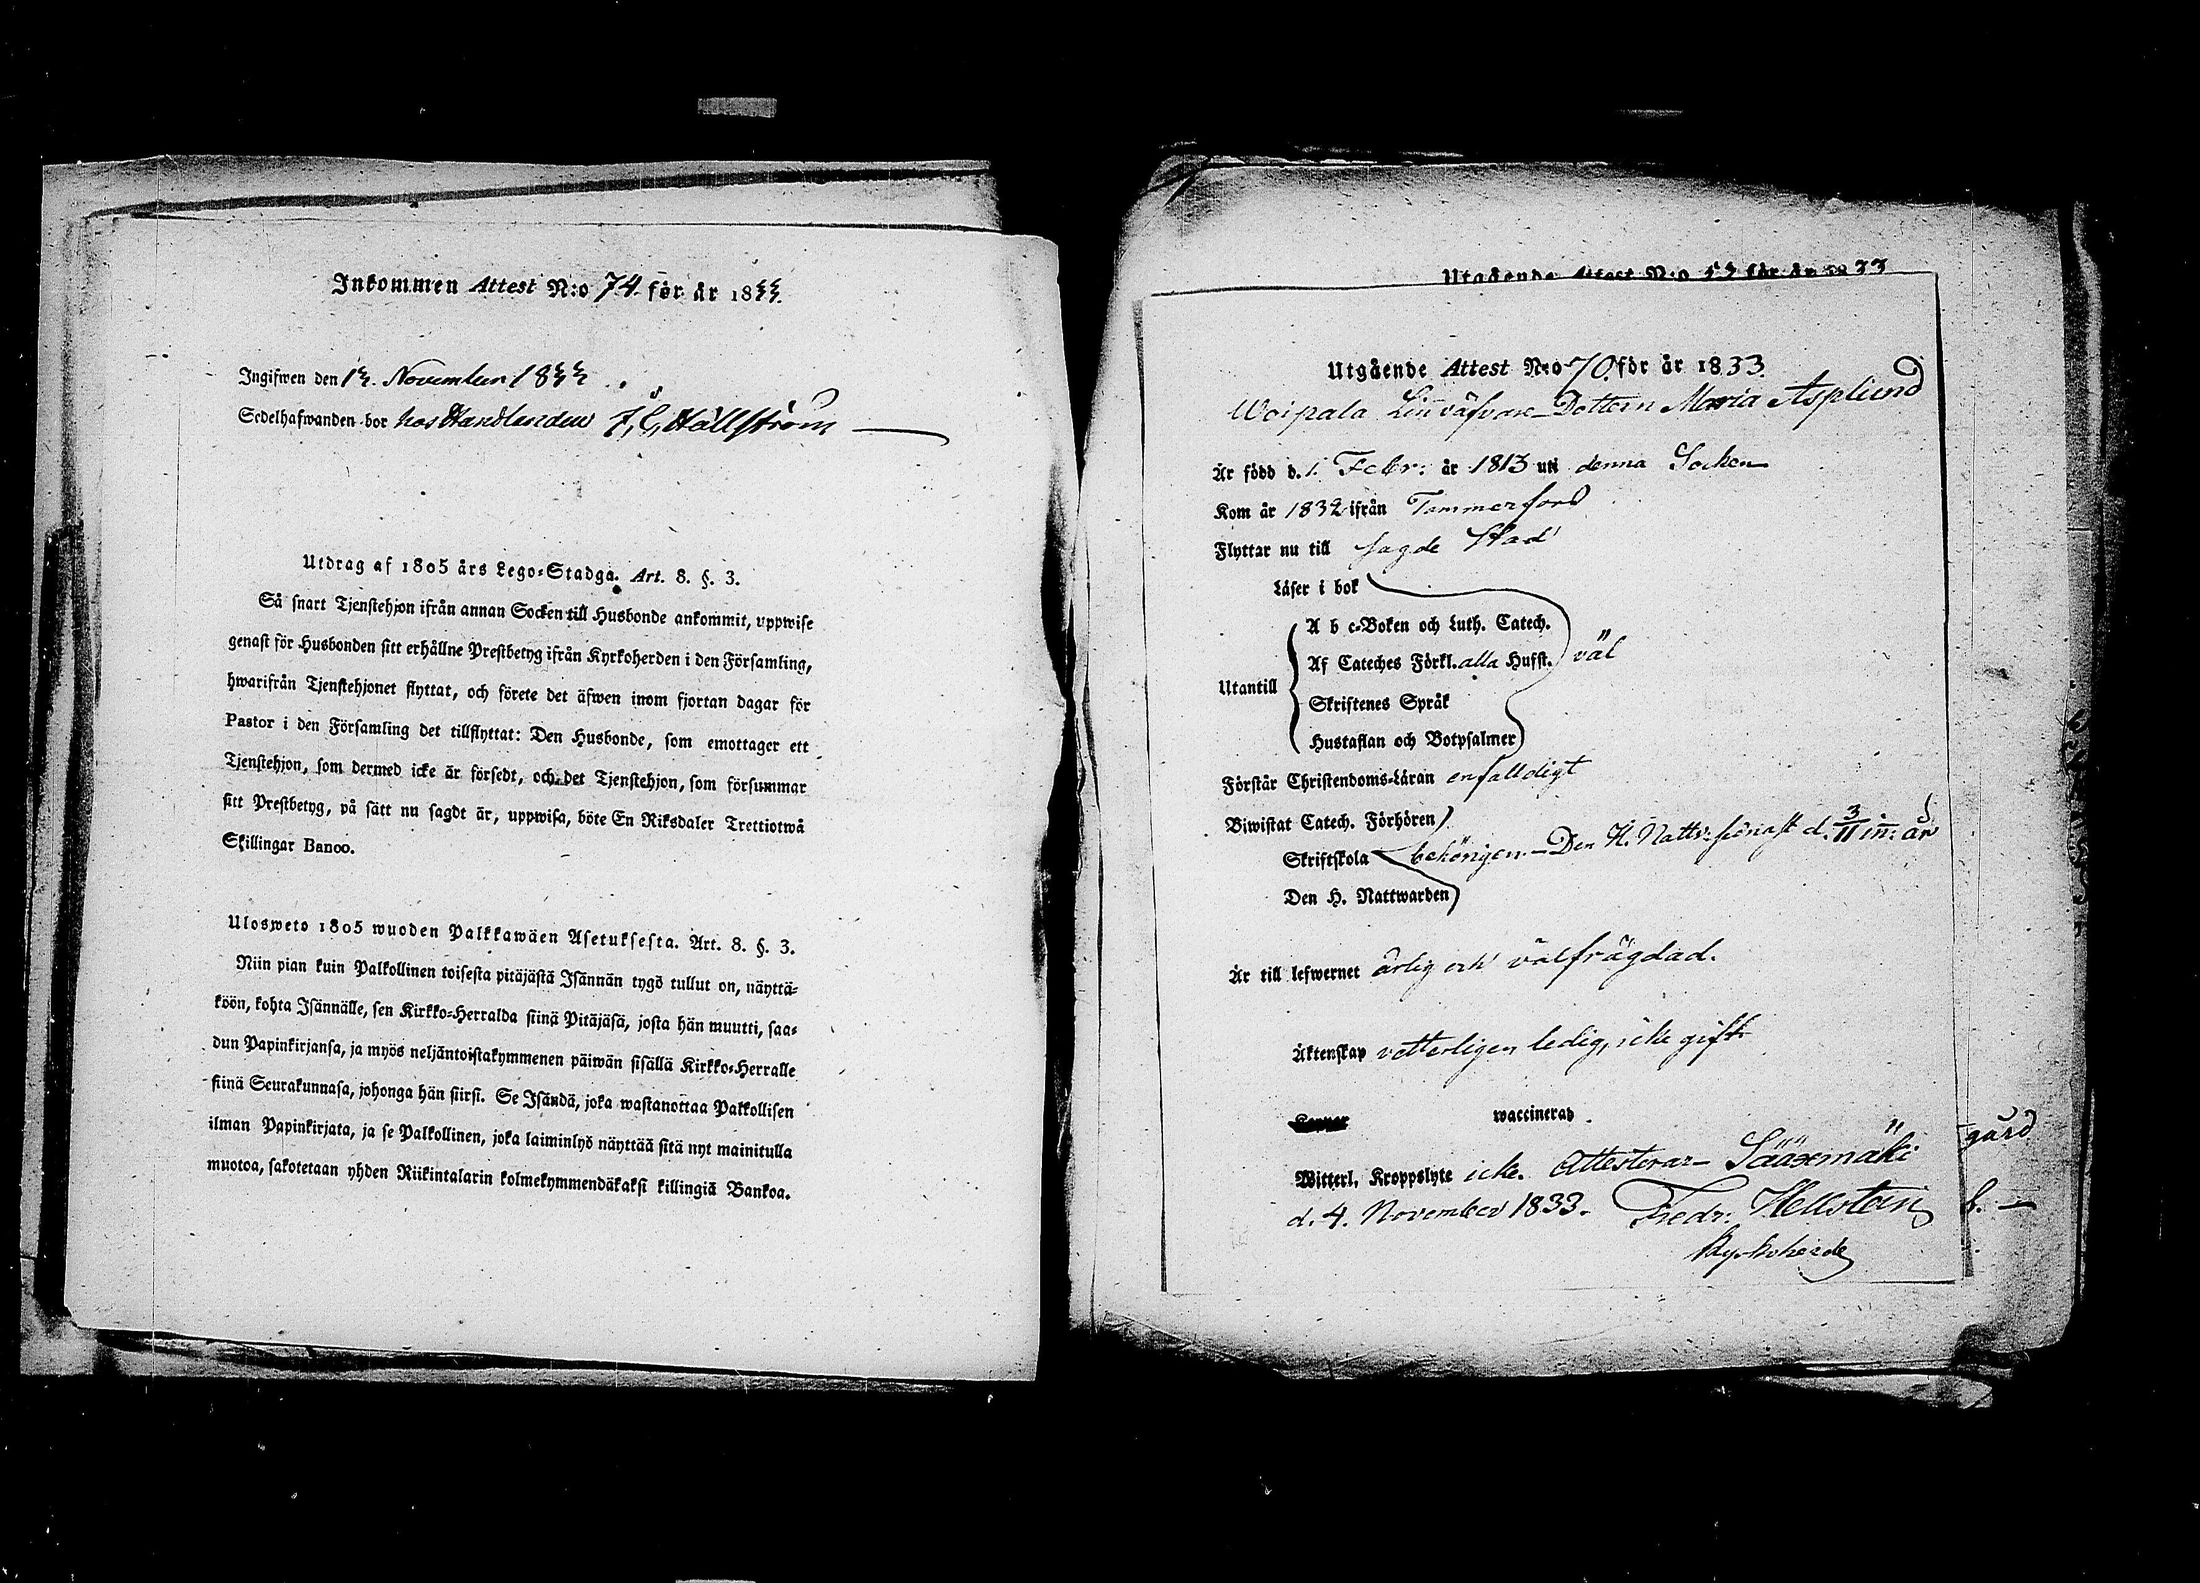 Inkommen Attest N:o 74 för år 1833.
Ingifwen den 13. November 1833.
Sedelhafwanden bor hos Handlanden F. G. Hällström
Utdrag af 1805 års Lego-Stadga. Art. 8. §. 3.
Så snart Tjenstehjon ifrån annan Socken till Husbonde ankommit, uppwise
genast för Husbonden sitt erhållne Prestbetyg ifrån Kyrkoherden i den Församling,
hwarifrån Tjenstehjonet flyttat, och förete det äfwen inom fjortan dagar för
Pastor i den Församling det tillflyttat: Den Husbonde, som emottager ett
Tjenstehjon, som dermed icke är försedt, och det Tjenstehjon, som försummar
sitt Prestbetyg, på sätt nu sagdt är, uppwisa, böte En Riksdaler Trettiotwå
Skillingar Banco.
Ulosweto 1805 wuoden Palkkawäen Asetuksesta. Art. 8. §. 3.
Niin pian kuin Palkollinen toisesta pitäjästä Isännän tygö tullut on, näyttä-
köön, kohta Isännälle, sen Kirkko-Herralda siinä Pitäjäsä, josta hän muutti, saa-
dun Papinkirjansa, ja myös neljäntoistakymmenen päiwän sisällä Kirkko-Herralle
siinä Seurakunnasa, johonga hän siirsi. Se Isändä, joka wastanottaa Palkollisen
ilman Papinkirjata, ja se Palkollinen, joka laiminlyö näyttää sitä nyt mainitulla
muotoa, sakotetaan yhden Riikintalarin kolmekymmendäkaksi killingiä Bankoa.
Utgående Attest N:o 53 för år 1833
Utgående Attest N:o 70. för år 1833.
Woipala Linväfvare Dottern Maria Asplund
Är född d. 1. Febr: år 1813 uti denna Socken
Kom år 1832 ifrån Tammerfors
Flyttar nu till sagde Stad
Läser i bok
A b c-Boken och Luth. Catech.
Af Cateches Förkl. alla Hufst. väl
Utantill
Skriftenes Språk
Hustaflan och Botpsalmer
Förstår Christendoms-Läran enfalldigt
Biwistat Catech. Förhören
Skriftskola behörigen. Den H. Nattv: senast d. 3/11 in: år
Den H. Nattwarden
Är till lefwernet ärlig och välfrägdad.
Äktenskap vetterligen ledig, icke gift
waccinerad.
Witterl. Kroppslyte icke. Attesterar Sääxmäki
gård
d. 4. November 1833. Fredr: Hellsten
Kyrkoherde